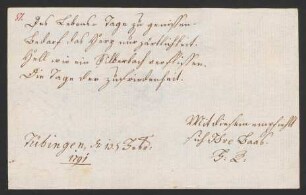 57.
Des Lebens Tage zu genießen
Bedarf das Herz nur zärtlichkeit.
Hell wie ein Silberbach verfließen
Die Tage der zufriedenheit.
Tübingen, d 13 Febr.
1791
Mit diesem empfiehlt
sich Ihre Baas